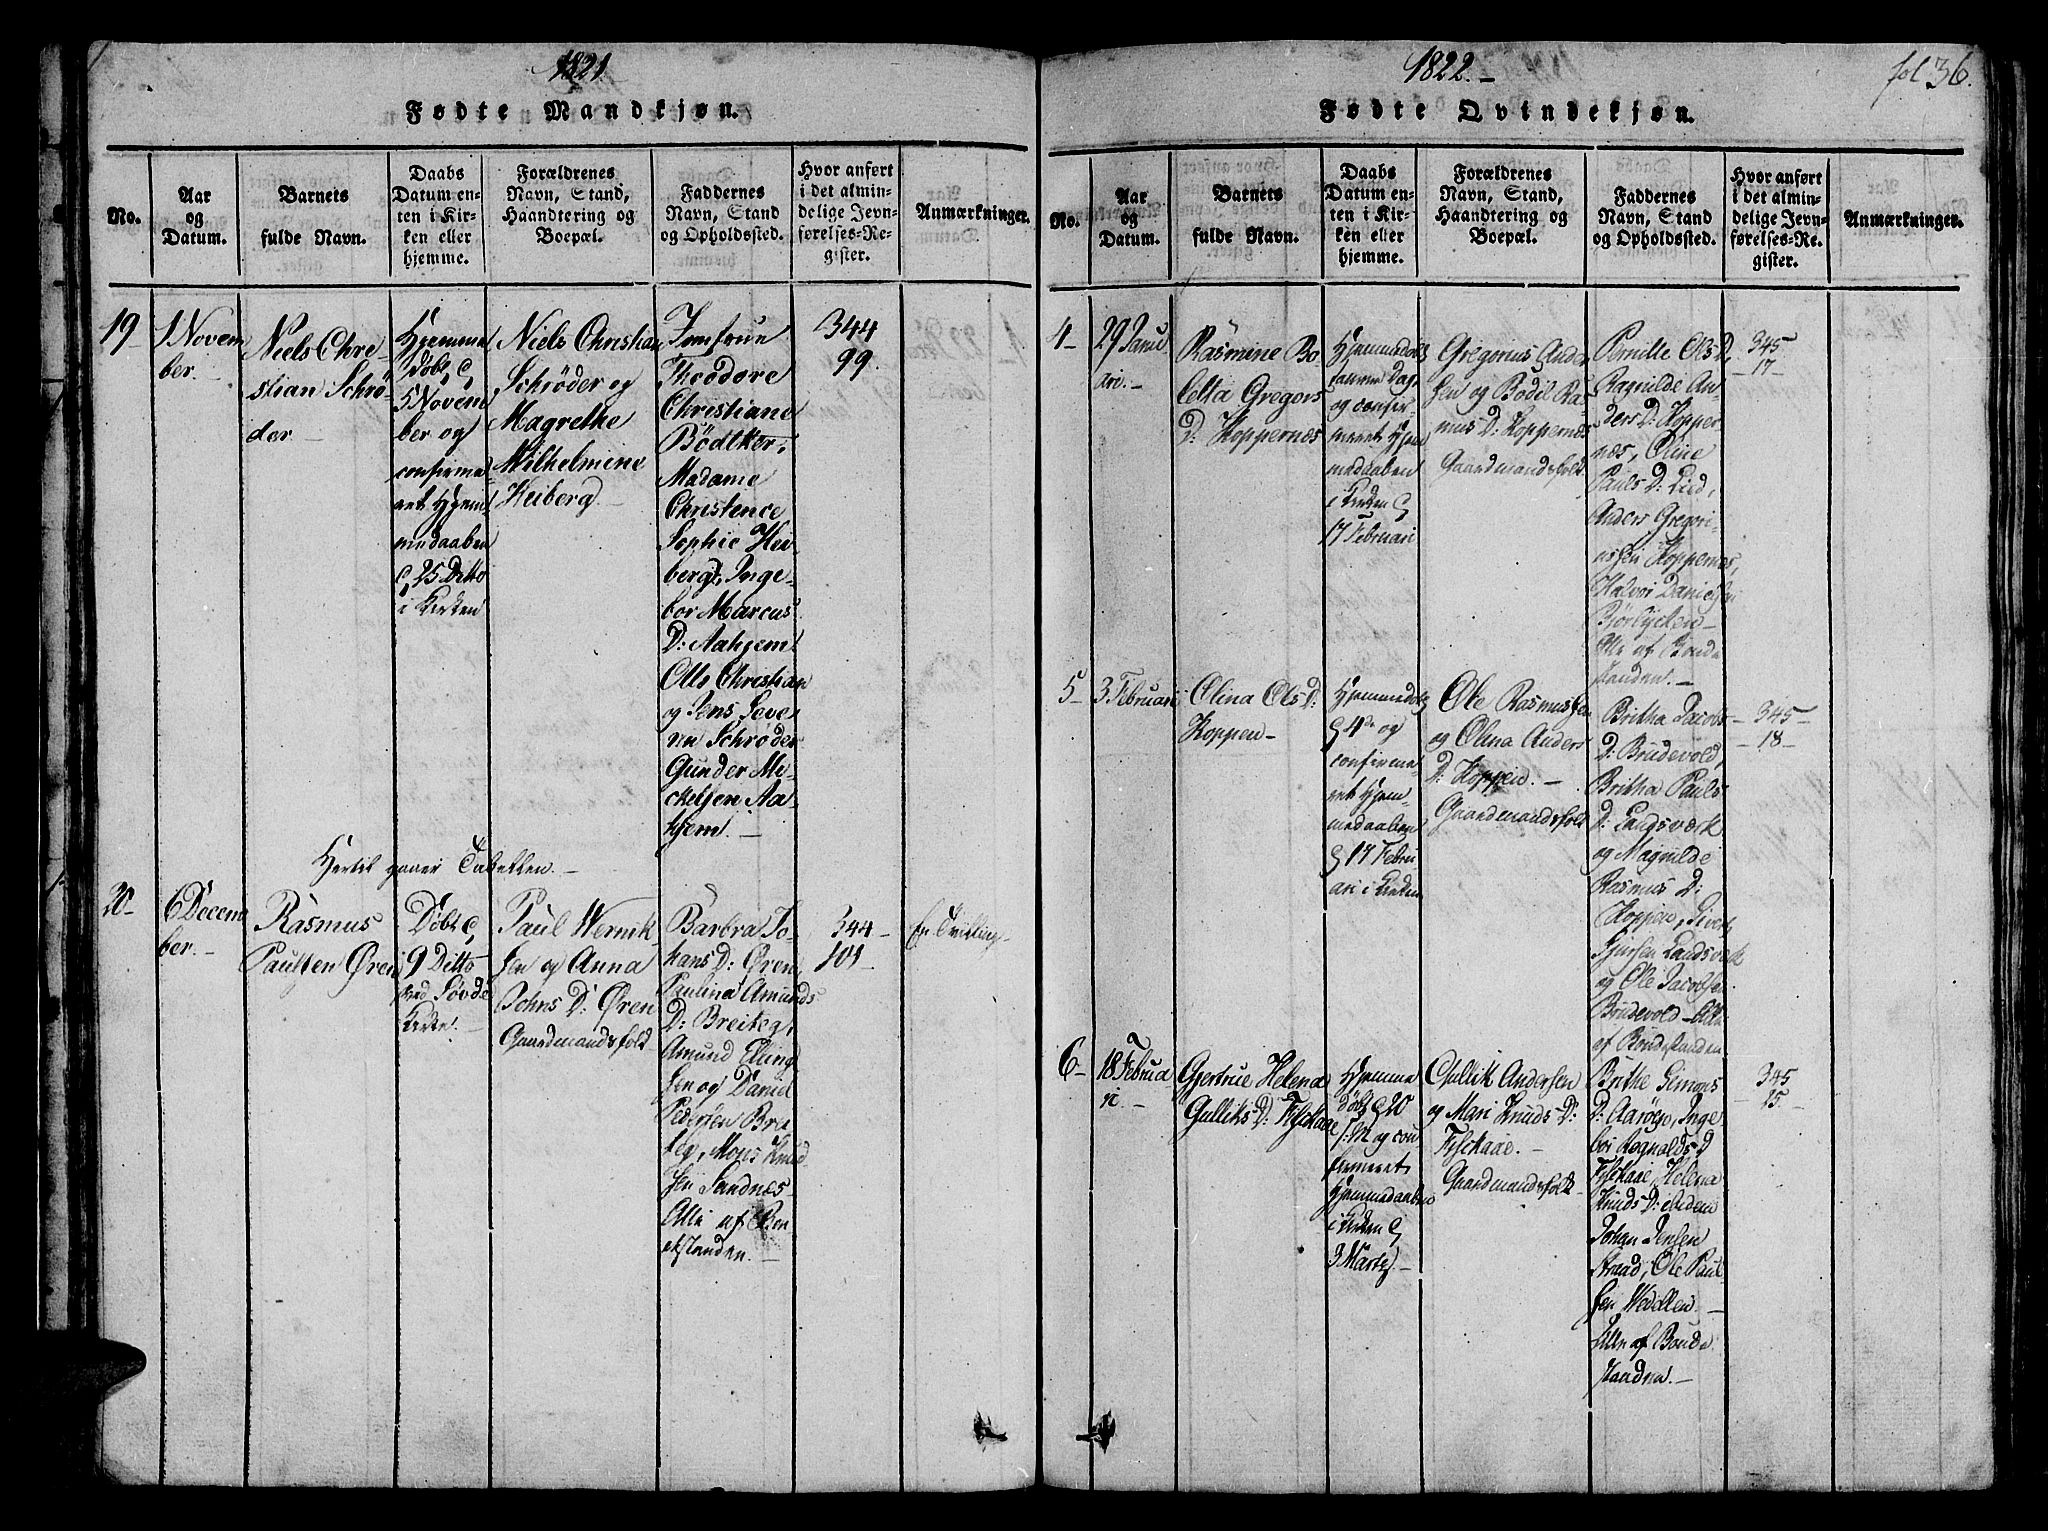 1821
Fødte Mandkjøn.
No.
Aar
og
Datum.
Barnets
fulde Navn.
Daabs
Datum en-
ten i Kir-
ken eller
hjemme.
Forældrenes
Navn, Stand,
Haandtering og
Boepæl.
Faddernes
Navn, Stand
og Opholdssted.
Hvor anført
i det almin-
delige Jevn-
førelses-Re-
gister.
Anmærkninger.
19
1 Novem
ber.
Niels Chre-
stian Schrø-
der
Hjemme
døbt
5 Novem
ber og
confirme-
ret Hjem-
medaaben
25 Ditto
i Kirken
Niels Christian
Schrøder og
Magrethe
Wilhelmine
Heiberg
Jomfrue
Theodore
Christiane
Bödtker,
Madame
Christence
Sophie Hei-
berg, Inge-
bor Marcus
D: Aahjem
Otto Christian
og Jens Seve-
rin Schrøder
Gunder Mi-
ckelsen Aa-
hjem.
344
99.
Hertil gaaer Tabellen.
20
6 Decem
ber.
Rasmus
Paulsen Øren
Døbt
9 Ditto
ved Søvde
Kirke.
Paul Wernik-
sen og Anna
Johns D: Øren
Gaardmandsfolk
Barbra Jo-
hans D: Øren,
Paulina Amunds
D: Breiteg,
Amund Elling
sen og Daniel
Pedersen Brei-
teg, Mons Knud
sen Sandnes
Alle af Bon
destanden.
344
101
En Tvilling
1822.
fol 36.
Fødte Qvindekjøn.
No.
Aar
og
Datum.
Barnets
fulde Navn.
Daabs
Datum en-
ten i Kir-
ken eller
hjemme.
Forældrenes
Navn, Stand,
Haandtering og
Boepæl.
Faddernes
Navn, Stand
og Opholdssted.
Hvor anført
i det almin-
delige Jevn-
førelses-Re-
gister.
Anmærkninger.
4
29 Janu
ari.
Rasmine Bo
letta Gregors
D: Koppernæs
Hjemmedøbt
samme Dag
og confir-
meret Hjem
medaaben
i Kirken
17 Februari
Gregorius Ander
sen og Bodil Ras-
mus D: Koppernæs
Gaardmandsfolk
Pernille Ols D,
Ragnilde An-
ders D: Kopper
næs, Oline
Pauls D: Lied,
Anders Gregori-
ussen Koppernæs,
Halvor Danielsen
Bjørlycken
Alle af Bonde
standen.
345
17
5
3 Februari
Olina Ols D:
Koppen
Hjemmedøbt
4de og
confirme-
ret Hjem-
medaaben
17 Febru
ari i Kirken
Ole Rasmussen
og Olina Anders
D: Koppen.
Gaardmandsfolk
Britha Jacobs
D: Brudevold,
Britha Pauls
D: Langsvæk
og Magnilde
Rasmus D:
Koppen, Sivert
Landsværk
og Ole Jacobsen
Brudevold Alle
af Bondestanden
345
18
6
18 Februa
ri.
Gjertrue Helena
Gulliks D: Fiskaae
Hjemme
døbt 20
og con
firmeret
Hjemmedaaben
i Kirken
3 Martz.
Gullik Andersen
og Mari Knuds D:
Fiskaae.
Gaardmandsfolk
Brithe Simons
D: Aarøgo, Inge
bor Ragnalds D
Fiskaae, Helena
Knuds D: Eidem
Johan Jensen
Straad, Ole Paul
sen Wedelden.
Alle af Bonde
standen.
345
25.